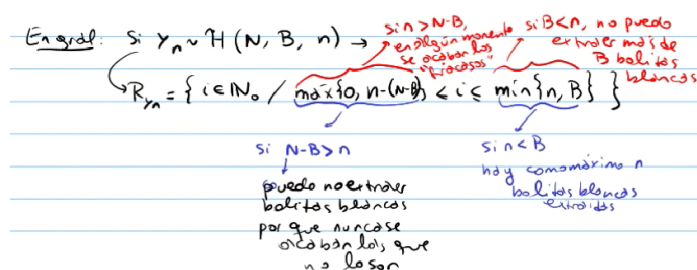 En gral: Si Yₙ ~ H (N, B, n) →
si n > N-B,
en algún momento
se acaban los
"fracasos"
si B < n, no puedo
extraer más de
B bolitas
blancas
R_Yₙ = { i ∈ ℕ₀ / max{0, n-(N-B)} ≤ i ≤ min{n, B} }
si N-B > n
puedo no extraer
bolitas blancas
porque nunca se
acaban las que
no lo son
si n < B
hay como máximo n
bolitas blancas
extraídas